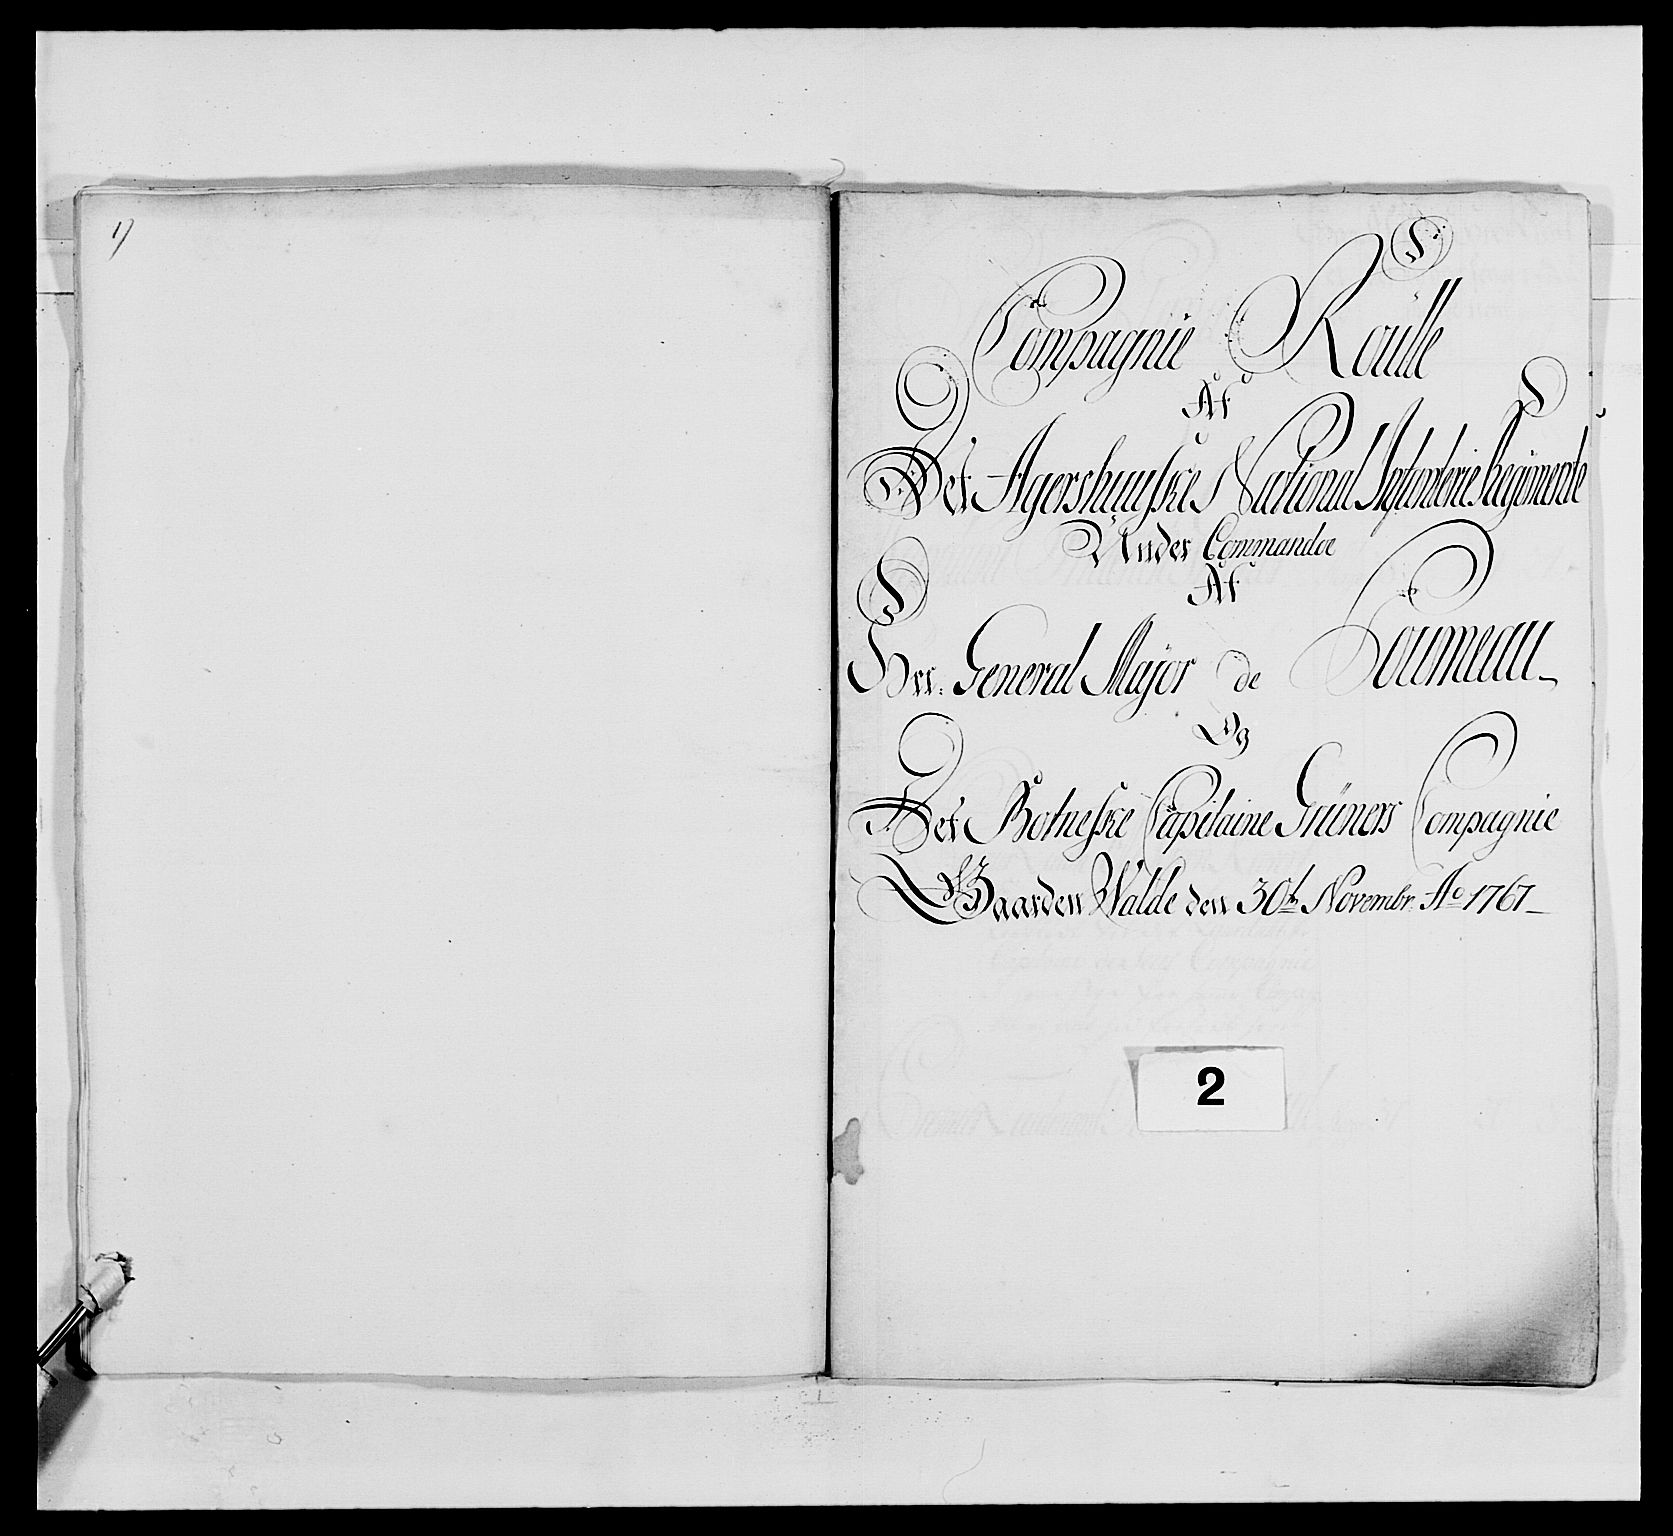 1)
Compagnie Roulle
Af
Det Agershuuske National Infanterie Regimente
Under Commandoe
Af
Hrr. General Major de Soumeau
Og
Det Botneske Capitaine Grüners Compagnie
Gaarden Walde den 30th Novembr. Ao 1767
2